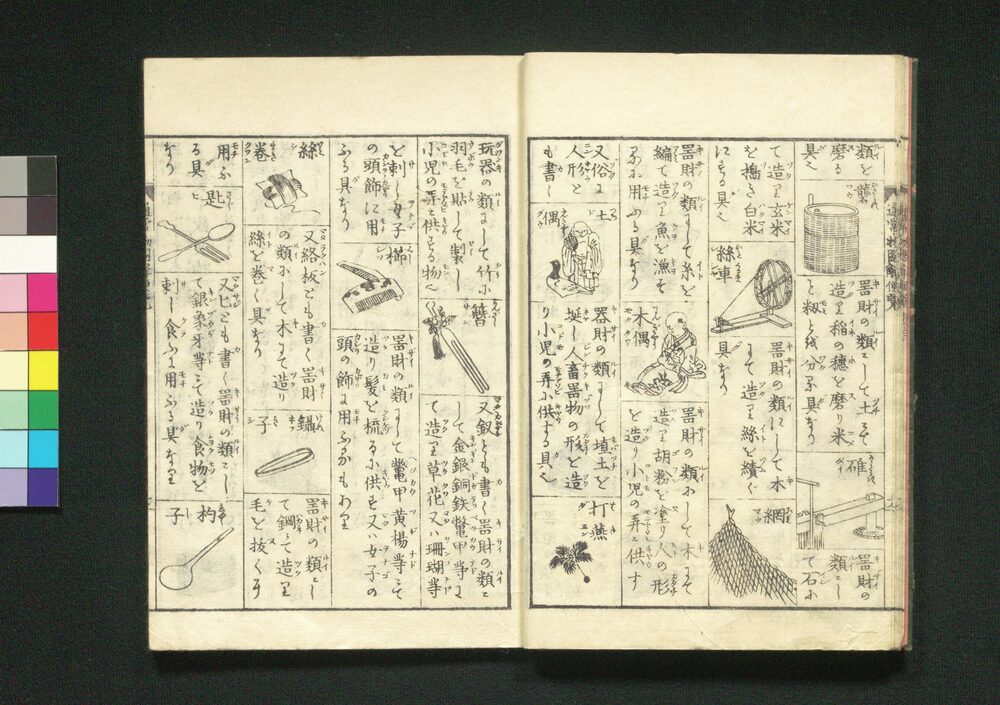 類を
磨る
具へ
礱
器財の類にして土にて
造り稲の穂を磨り米
と籾とを分る具なり
碓
器財の
類にし
て石に
て造り玄米
を搗き白米
にする具へ
絲車
器財の類にして木
にて造り絲を績ぐ
具なり
網
器財の類にして糸を
編て造り魚を漁する
に用ふる具なり
木偶
器財の類にして木にて
造り胡粉を塗り人の形
を造り小児の弄に供す
又俗に
人形と
も書く
土偶
器財の類にして埴土を
埏し人畜器物の形を造
り小児の弄に供する具へ
打燕
玩器の類にして竹に
羽毛を貼して製し
小児の弄に供する物へ
簪
又釵とも書く器財の類に
して金銀銅鉄鼈甲等に
て造り草花又ハ珊瑚等
を刺し女子
の頭飾に用
ふる具なり
櫛
器財の類にして鼈甲黄楊等にて
造り髪を梳るに供す又ハ女子の
頭の飾に用ふるもあり
絲巻
又絡柀とも書く器財
の類にして木にて造り
絲を巻く具なり
鑷子
器財の類にし
て鋼にて造り
毛を抜くに
用ふ
る具
なり
匙
又匕とも書く器財の類にし
て銀象牙等にて造り食物を
刺し食ふに用ふる具なり
杓子